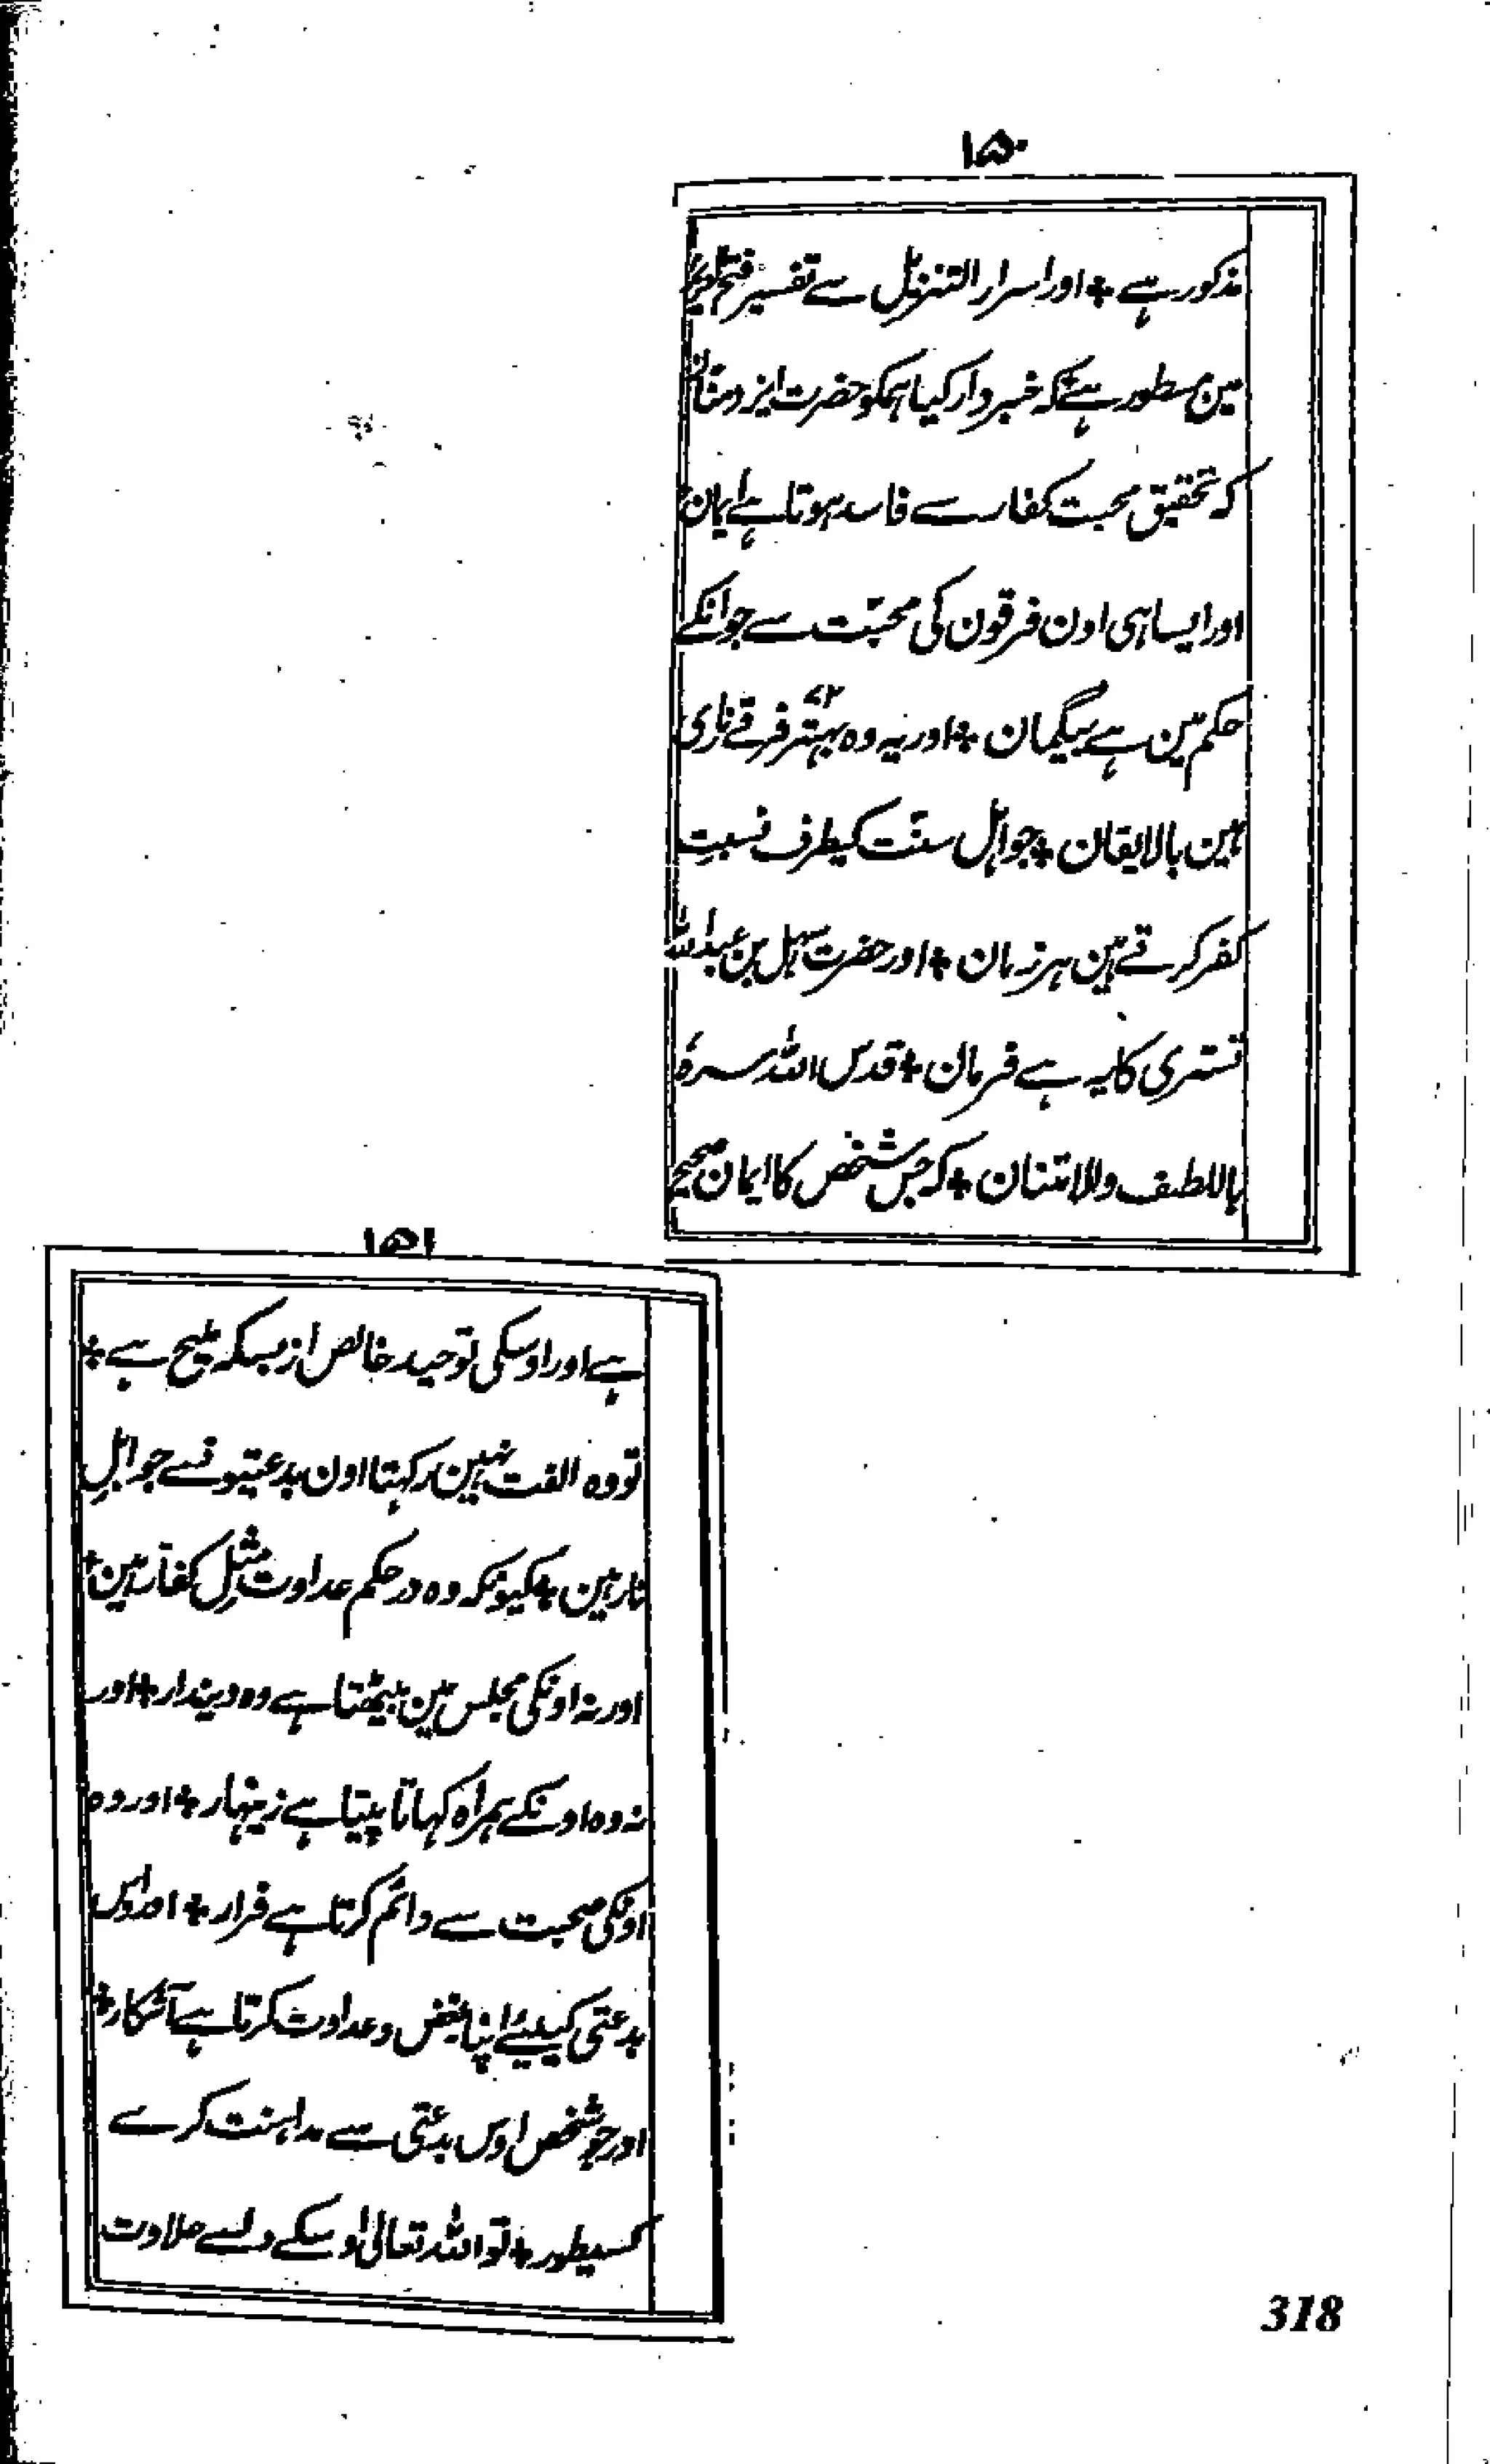 ۱۵۰
مذکور ہے + اور اسرار التنزیل سے تفسیر فتح
مین مسطور ہے کہ خبردار کیا ہمکو حضرت ایزد منان
کہ تحقیق محبت کفار سے فاسد ہوتا ہے ایمان
اور ایسا ہی اون فرقون کی محبّت سے جو انکے
حکم مین ہے بیگمان + اور یہ وہ بہتّر ۷۲ فرقے ناری
ہین بالایقان + جو اہل سنّت کیطرف نسبتِ
کفر کرتے ہین ہر زمان + اور حضرت سہل بن عبداللہ
تستری کا یہ ہے فرمان + قدس اللہ سرہٗ
باللطیف والامتنان + کہ جس شخص کا ایمان صحیح
۱۵۱
ہے اور اوسکی توحید خالص از بسکہ ملیح ہے +
تو وہ الفت نہین رکہتا اون بدعتیونسے جو اہلِ
نار ہین + کیونکہ وہ در حکم عداوت مثلِ کفار ہین +
اور نہ اونکی مجلس مین بیٹھتا ہے وہ دیندار + اور
نہ وہ اونکے ہمراہ کہاتا پیتا ہے زینہار + اور وہ
اونکی صحبت سے دائم کرتا ہے فرار + اور اوس
بدعتی کیلیئے اپنا بغض و عداوت کرتا ہے آشکار +
اور جو شخص اوس بدعتی سے مداہنت کرے
کسیطور + تو اللہ تعالیٰ اوسکے دلسے حلاوت
318